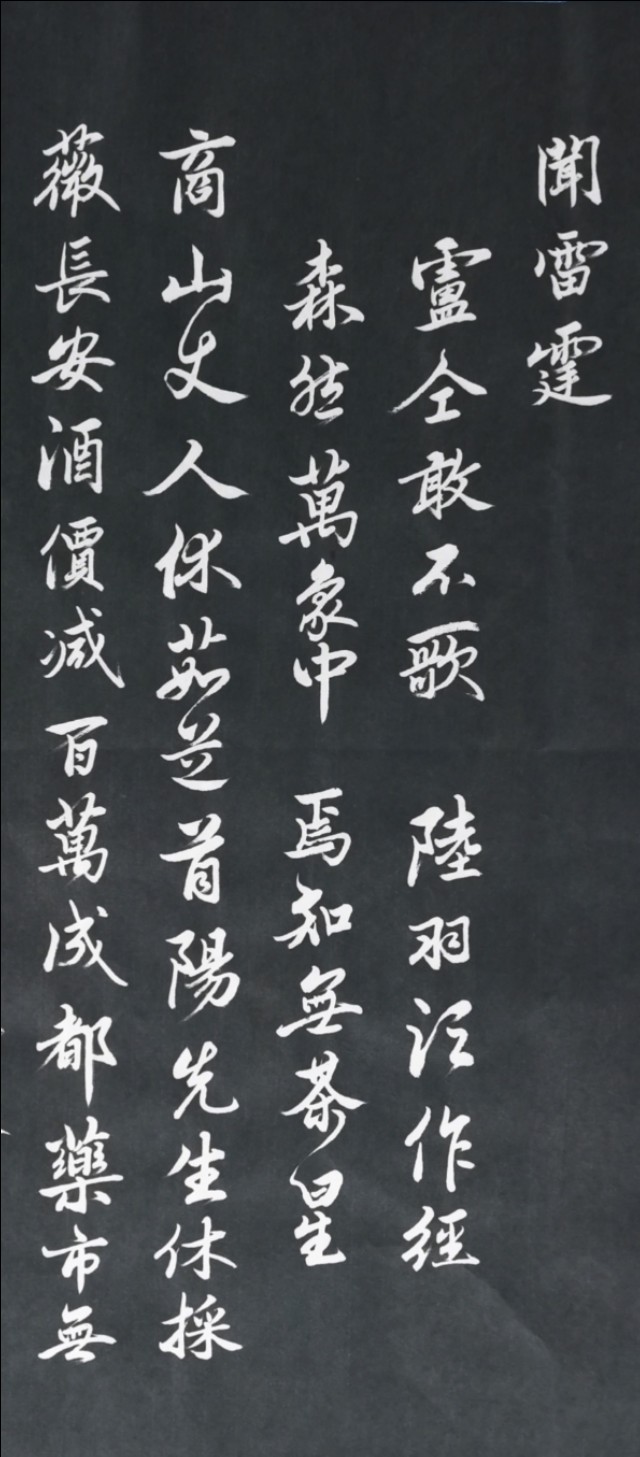 聞雷霆
盧仝敢不歌 陸羽須作經
森然萬象中 焉知無茶星
商山丈人休茹芝首陽先生休採
薇長安酒價減百萬成都藥市無